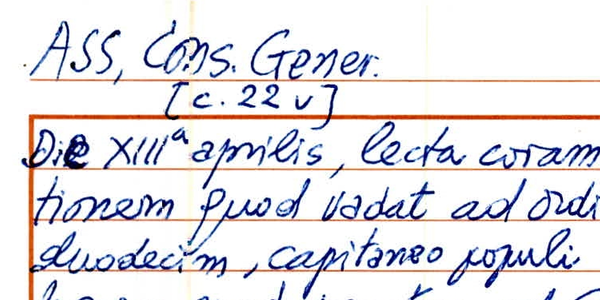 ASS, Cons. Gener.
[c. 22 v]
Die XIIIª aprilis, lecta coram
tionem quod vadat ad ordi
duodecim, capitaneo populi